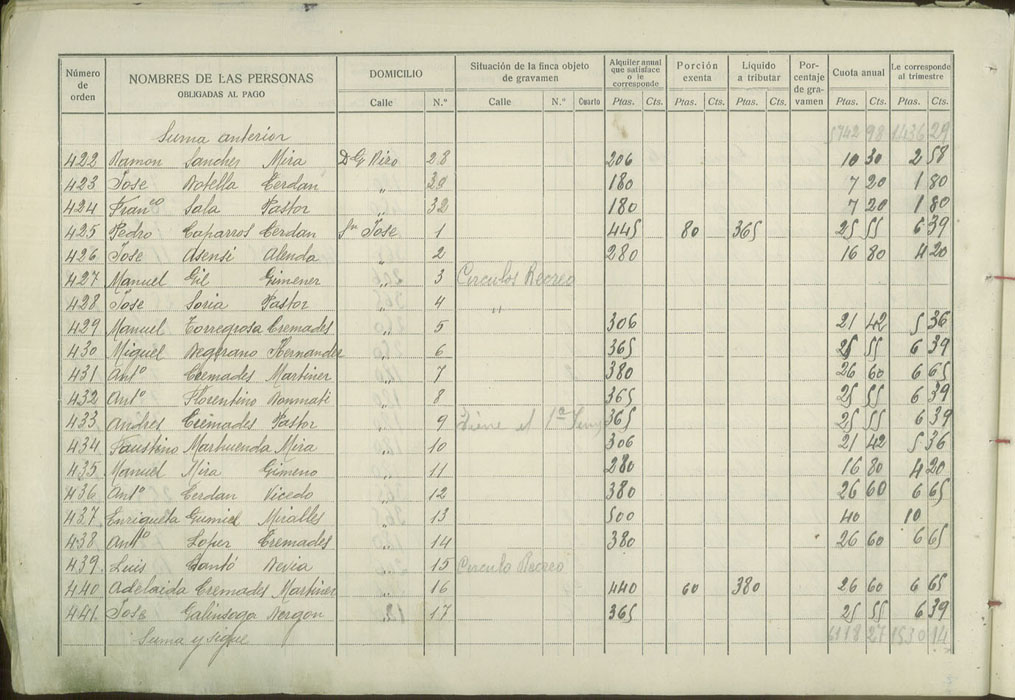 Número de orden | NOMBRES DE LAS PERSONAS OBLIGADAS AL PAGO | DOMICILIO | Situación de la finca objeto de gravamen | Alquiler anual que satisface o le corresponde | Porción exenta | Líquido a tributar | Porcentaje de gravamen | Cuota anual | Le corresponde al trimestre
Calle | N.º | Calle | N.º | Cuarto | Ptas. | Cts. | Ptas. | Cts. | Ptas. | Cts. | Ptas. | Cts. | Ptas. | Cts.
Suma anterior 5742 98 1436 29
422 Ramon Sanches Mira D G Riro 28 206 10 30 2 58
423 Jose Botella Cerdan " 30 180 7 20 1 80
424 Franco Sala Pastor " 32 180 7 20 1 80
425 Pedro Caparros Cerdan Sn Jose 1 445 80 365 25 55 6 39
426 Jose Asensi Alenda " 2 280 16 80 4 20
427 Manuel Gil Gimener " 3 Circulos Recreo
428 Jose Soria Pastor " 4 "
429 Manuel Torregrosa Cremades " 5 306 21 42 5 36
430 Miguel Hernander " 6 365 25 55 6 39
431 Antº Cremades Martiner " 7 380 26 60 6 65
432 Antº Florentino Bonmati " 8 365 25 55 6 39
433 Andres Cremades Pastor " 9 Tiene el 1ª 365 25 55 6 39
434 Faustino Marhuenda Mira " 10 306 21 42 5 36
435 Manuel Mira Gimeno " 11 280 16 80 4 20
436 Antº Cerdan Vicedo " 12 380 26 60 6 65
437 Enriqueta Gumiel Miralles " 13 500 40 10
438 Antº Loper Cremades " 14 380 26 60 6 65
439 Luis Cantó Devia " 15 Circulo Recreo
440 Adelaida Cremades Martiner " 16 440 60 380 26 60 6 65
441 Jose Galinsoga Bergon " 17 365 25 55 6 39
Suma y sigue 6118 27 1530 14